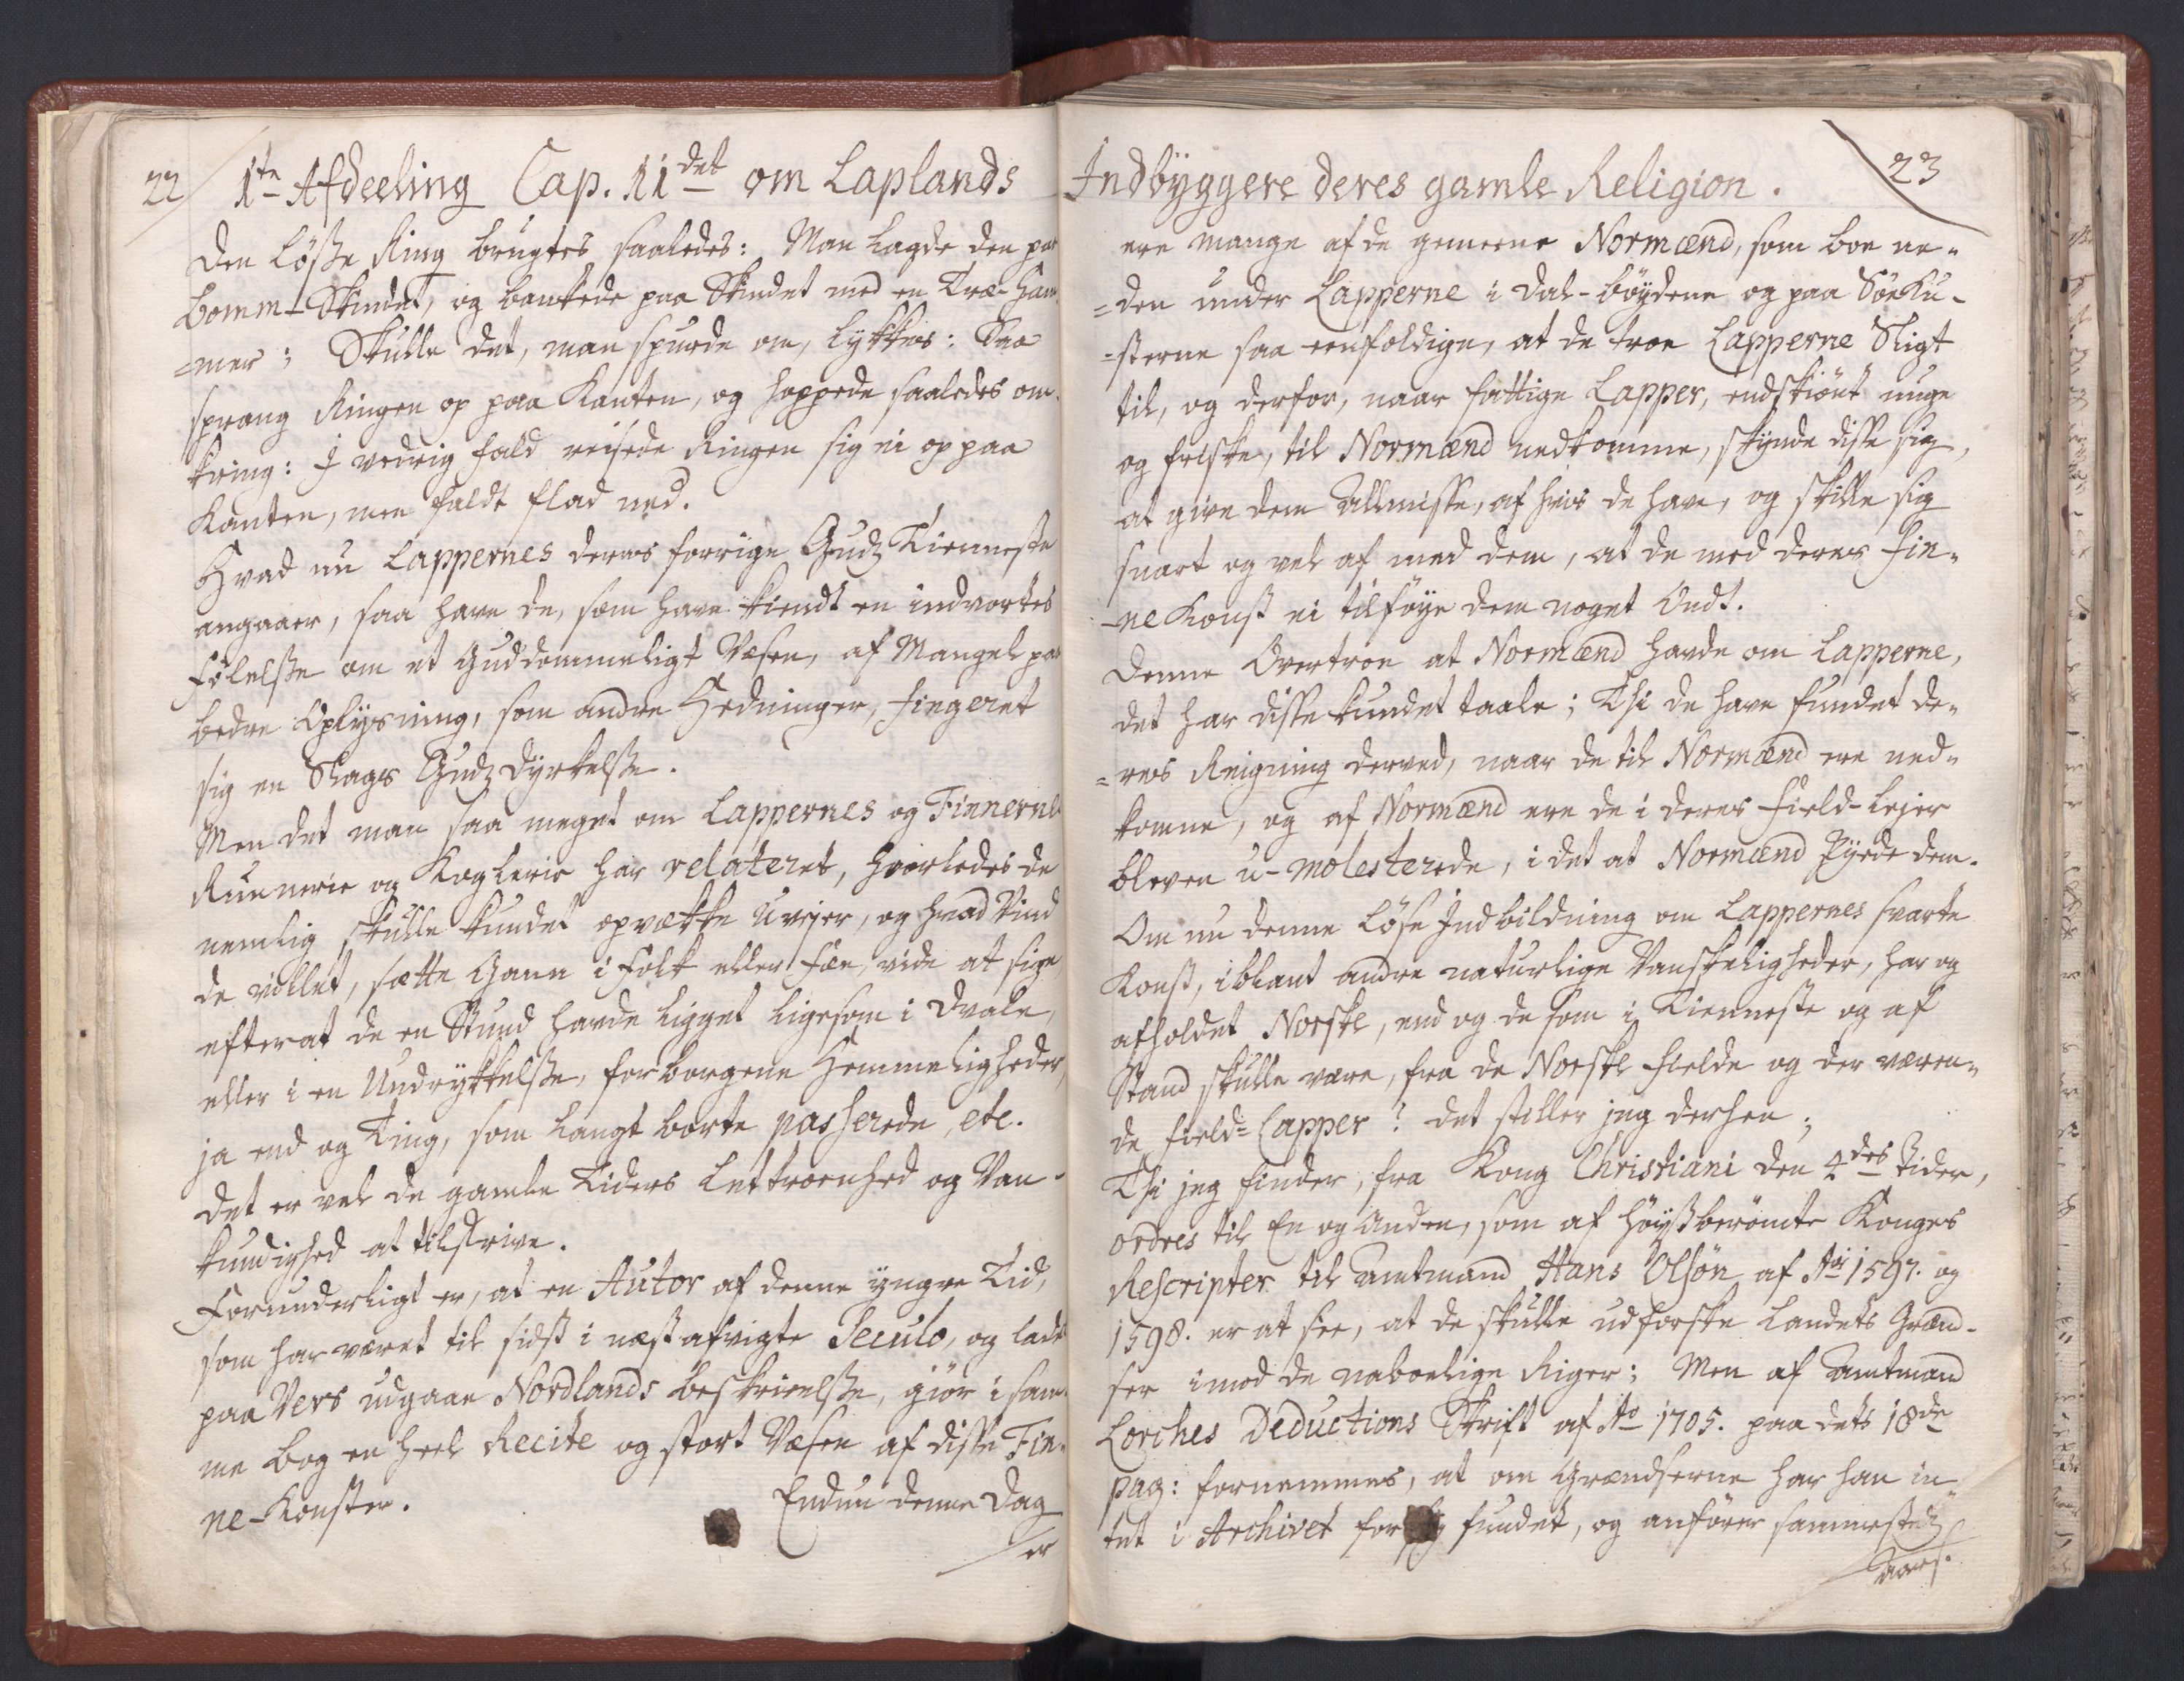 22
1te Afdeeling Cap. 11det om Laplands
Den løsse Ring brugtes saaledes: Man lagde den paa
Bomm-Skindet, og bankede paa Skindet med en Træ-Ham-
=mer; Skulle det, man spurde om, lykkes: Saa
sprang Ringen op paa Kanten, og hoppede saaledes om-
kring: I vedrig fald reisede Ringen sig ei op paa
Kanten, men faldt flad ned.
Hvad nu Lappernes deres forrige Gudz Tienneste
angaaer, saa have de, som have kiendt en indvortes
Følelsse om et Guddommeligt Væsen, af Mangel paa
bedre Oplysning, som andre Hedninger, fingeret
sig en Slags Gudz Dyrkelsse.
Men det man saa meget om Lappernes og Finnernes
Runnerie og Koglerie har relateret, hvorledes de
nemlig skulle kundet opvække Uvejer, og hvad Vind
de villet, sætte Gann i Folk eller Fæe, vide at sige
efter at de en Stund havde ligget ligesom i Dvale,
eller i en Undrykkelsse, forborgene Hemmeligheder,
ja end og Ting, som langt borte passerede, etc.
det er vel de gamle Tiders Lettroenhed og Van-
kundighed at tilskrive.
Forunderligt er, at en Autor af denne yngre Tid,
som har været til sidst i næst afvigte Seculo, og ladet
paa Vers udgaae Nordlands beskrivelsse, giør i sam-
me bog en heel Recite og stort Væsen af disse Fin-
ne-Konster.
Endnu denne Dag
er
Indbyggere deres gamle Religion.
23
ere mange af de gemeene Normænd, som boe ne-
=den under Lapperne i Dal-bøydene og paa Søe Ky-
=sterne saa eenfoldige, at de troe Lapperne Sligt
til, og derfor, naar fattige Lapper, endskiønt unge
og friske, til Normænd nedkomme, skynde disse sig,
at give dem Allmisse, af hvis de have, og skille sig
snart og vel af med dem, at de med deres Fin-
-ne Konst ei tilføye dem noget Ondt.
Denne Overtroe at Normænd havde om Lapperne,
det har disse kundet taale; Thi de have fundet de-
=res Reigning derved, naar de til Normænd ere ned-
komne, og af Normænd ere de i deres Field-Lejer
bleven u-molesterede, i det at Normænd Fryede dem.
Om nu denne løse Indbildning om Lappernes svarte
Konst, iblant andre naturlige Vanskeligheder, har og
afholdet Norske, end og de som i Tienneste og af
Stand skulle være, fra de Norske Fielde og der væren-
de Field-Lapper? det stiller jeg derhen;
Thi jeg finder, fra Kong Christiani den 4des Tider,
ordres til En og Anden, som af høystberømte Konges
Rescripter til Amtmand Hans Olsøn af Ao 1597. og
1598. er at see, at de skulle udforske Landets Grænd-
ser imod de naboelige Riger; Men af Amtmand
Lorches Deductions Skrift af Ao 1705. paa dets 18de
pag: fornemmes, at om Grændserne har han in-
tet i Archivet for sig fundet, og anfører sammestedz